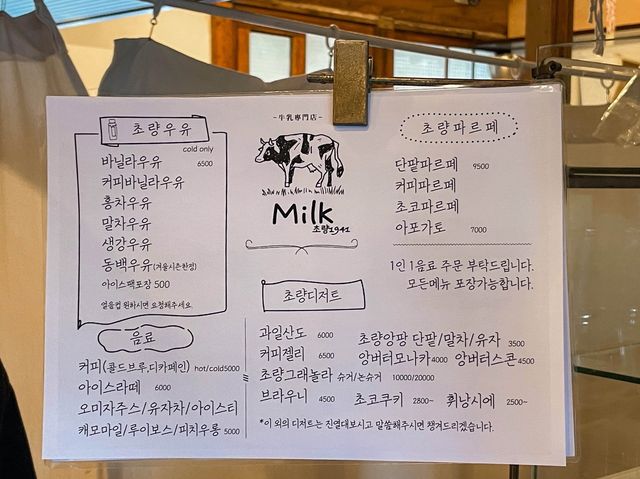 초량우유
cold only
바닐라우유 6500
커피바닐라우유
홍차우유
말차우유
생강우유
동백우유(겨울시즌한정)
아이스팩포장 500
얼음컵 원하시면 요청해주세요
-牛乳專門店-
Milk
초량1941
초량파르페
단팥파르페 9500
커피파르페
초코파르페
아포가토 7000
1인 1음료 주문 부탁드립니다.
모든메뉴 포장가능합니다.
음료
커피(콜드브루/디카페인) hot/cold5000
아이스라떼 6000
오미자주스/유자차/아이스티
캐모마일/루이보스/피치우롱 5000
초량디저트
과일산도 6000 초량앙팡 단팥/말차/유자 3500
커피젤리 6500 앙버터모나카4000 앙버터스콘4500
초량그래놀라 슈거/논슈거 10000/20000
브라우니 4500 초코쿠키 2800~ 휘낭시에 2500~
*이 외의 디저트는 진열대보시고 말씀해주시면 챙겨드리겠습니다.